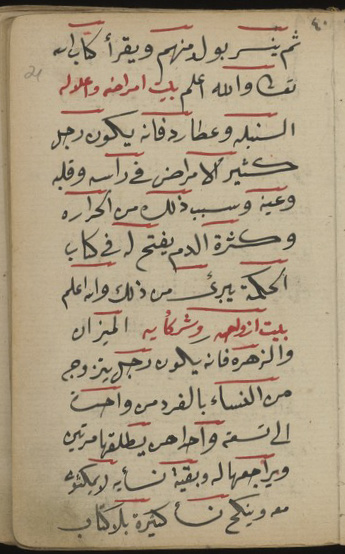 ٤٠
ثم ينسر بولد منهم ويقرأ كتاب الله
تعالى والله اعلم بيت امراضه واعلاله
السنبله وعطارد فانه يكون رجل
كثير الامراض في راسه وقلبه
وعينه وسبب ذلك من الحراره
وكثرة الدم يفتح له في كتاب
الحكمة يبرئ من ذلك والله اعلم
بيت ازواجه وشركائه الميزان
والزهره فانه يكون رجل يتزوج
من النساء بالفرد من واحدة
الى تسعة واحداهن يطلقها مرتين
ويراجعها له وبقية نسائه لا يمكثوا
معه وينكح نسأ كثيرة بلا كتاب